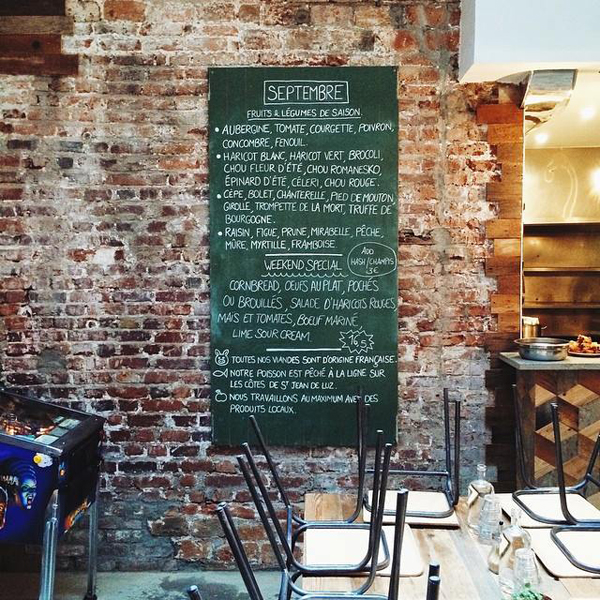 SEPTEMBRE
FRUITS & LÉGUMES DE SAISON
• AUBERGINE, TOMATE, COURGETTE, POIVRON,
CONCOMBRE, FENOUIL.
• HARICOT BLANC, HARICOT VERT, BROCOLI,
CHOU FLEUR D'ÉTÉ, CHOU ROMANESKO,
ÉPINARD D'ÉTÉ, CÉLERI, CHOU ROUGE.
• CÈPE, BOLET, CHANTERELLE, PIED DE MOUTON,
GIROLLE, TROMPETTE DE LA MORT, TRUFFE DE
BOURGOGNE.
• RAISIN, FIGUE, PRUNE, MIRABELLE, PÊCHE,
MÛRE, MYRTILLE, FRAMBOISE.
WEEKEND SPECIAL
ADD
HASH/CHAMPIS
3€
CORNBREAD, OEUFS AU PLAT, POCHÉS
OU BROUILLÉS, SALADE D'HARICOTS ROUGES,
MAIS ET TOMATES, BOEUF MARINÉ,
LIME SOUR CREAM.
16,5
TOUTES NOS VIANDES SONT D'ORIGINE FRANÇAISE.
NOTRE POISSON EST PÊCHÉ À LA LIGNE SUR
LES CÔTES DE ST JEAN DE LUZ.
NOUS TRAVAILLONS AU MAXIMUM AVEC DES
PRODUITS LOCAUX.